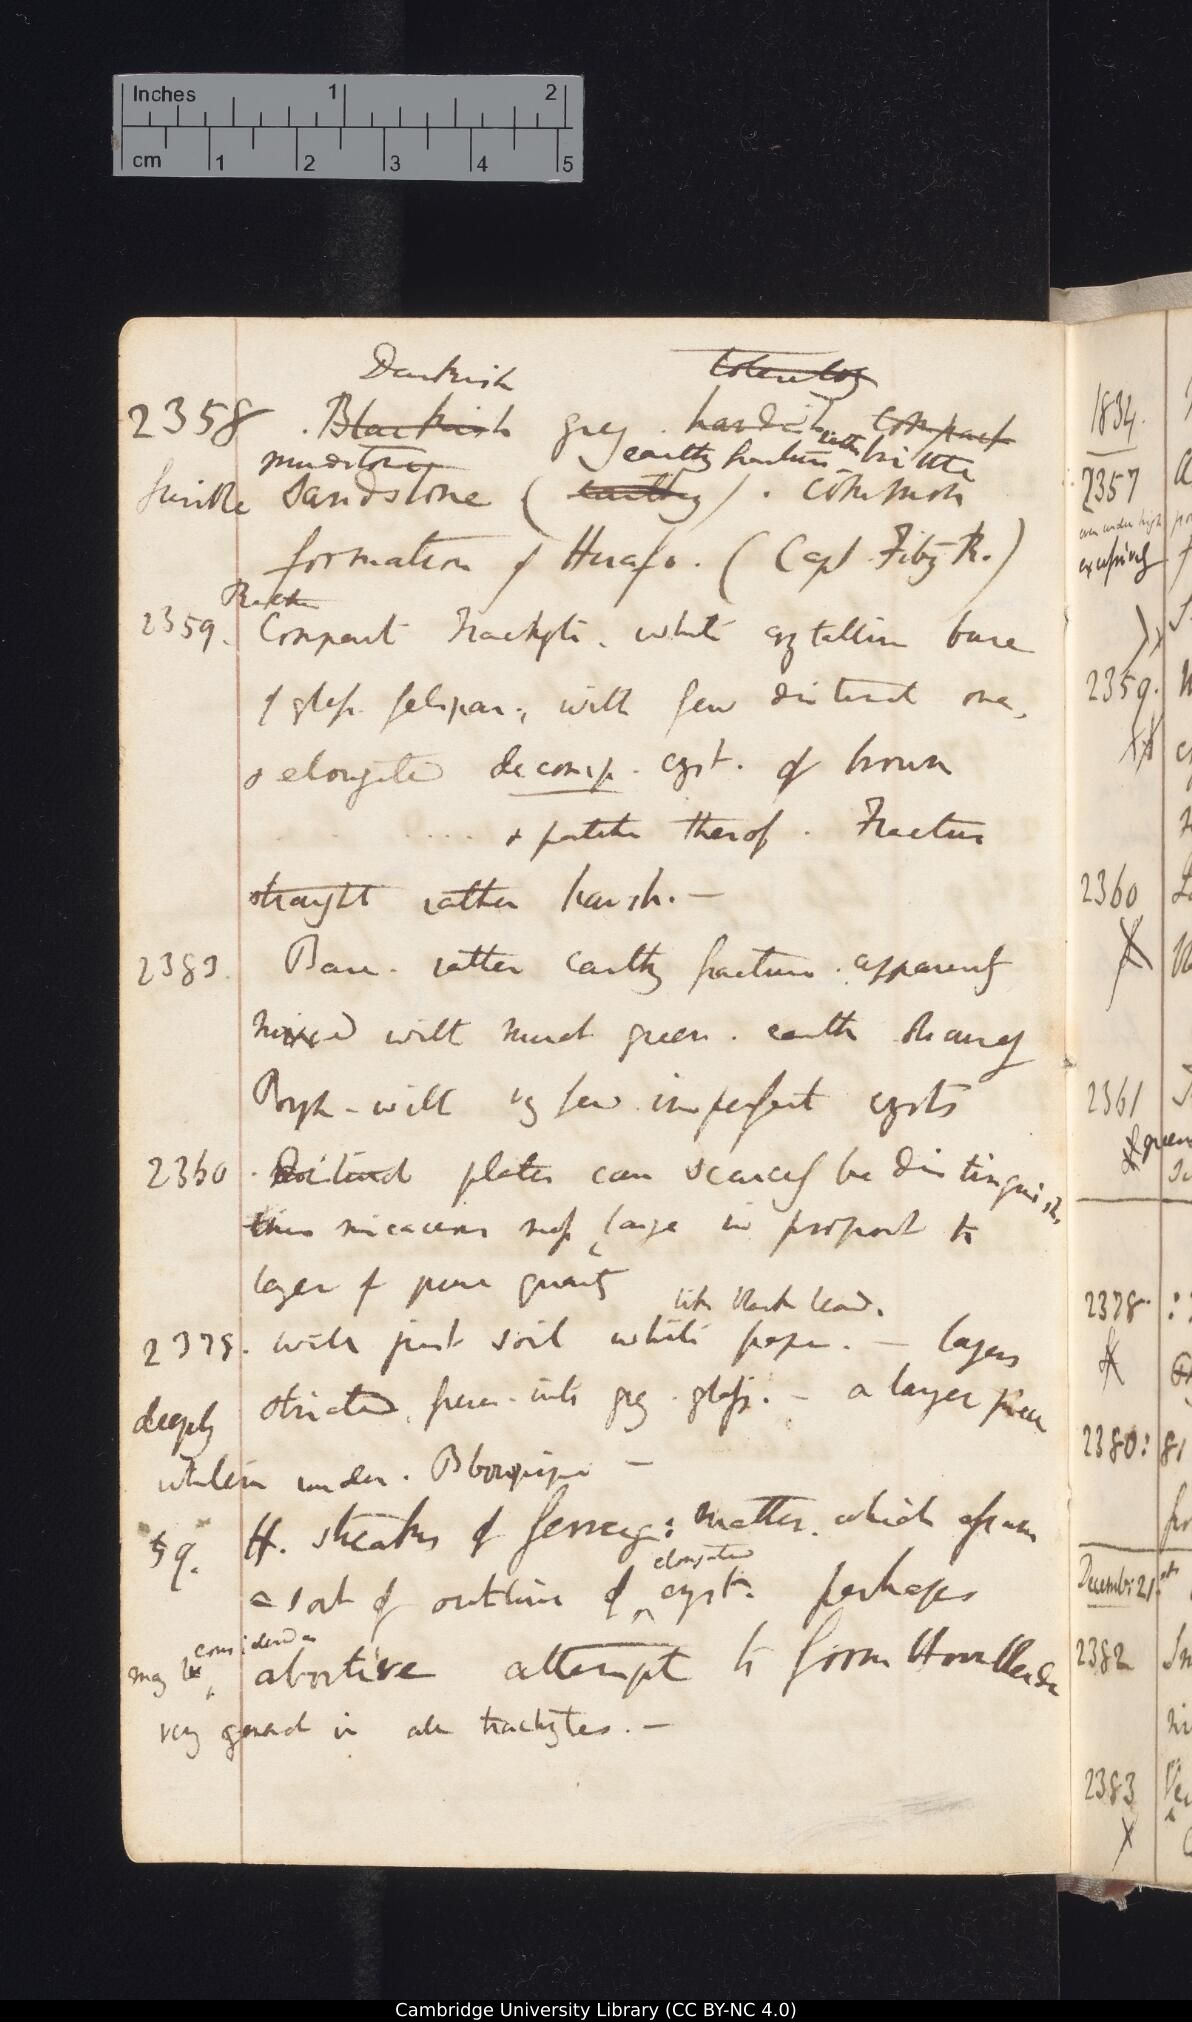 Inches 1 2
cm 1 2 3 4 5
Darkish
2358 . Blackish grey . hardish compact
mudstone earthy fracture rather brittle
sandstone (earthy) . common
formation of Huafo. (Capt. FitzR.)
Rather
2359. Compact Trachyte . white crystalline base
of gless. felspar:, with few distinct one,
& elongated decomp. cryst. of brown
+ patches therof . Fracture
straight rather harsh. —
2383. Base . rather earthy fracture . apparently
mixed with much green . earth strongly
with few imperfect crysts
2360 . plates can scarcely be distinguish
thin micaceous large in proport to
layer of pure quartz
like black lead.
2378. will just soil white paper. — layers
deeply striated, into grey . glass. — a layer pure
whitens under . Blowpipe —
59. H. streaks of ferrug: matter. which assum
elongated
a sort of outline of cryst. perhaps
considered as
may be abortive attempt to form Hornblende
very general in all trachytes. —
1834.
2357
2359.
2360
2361
2378
2380: 81
Decemb: 21st
2382
2383
Cambridge University Library (CC BY-NC 4.0)